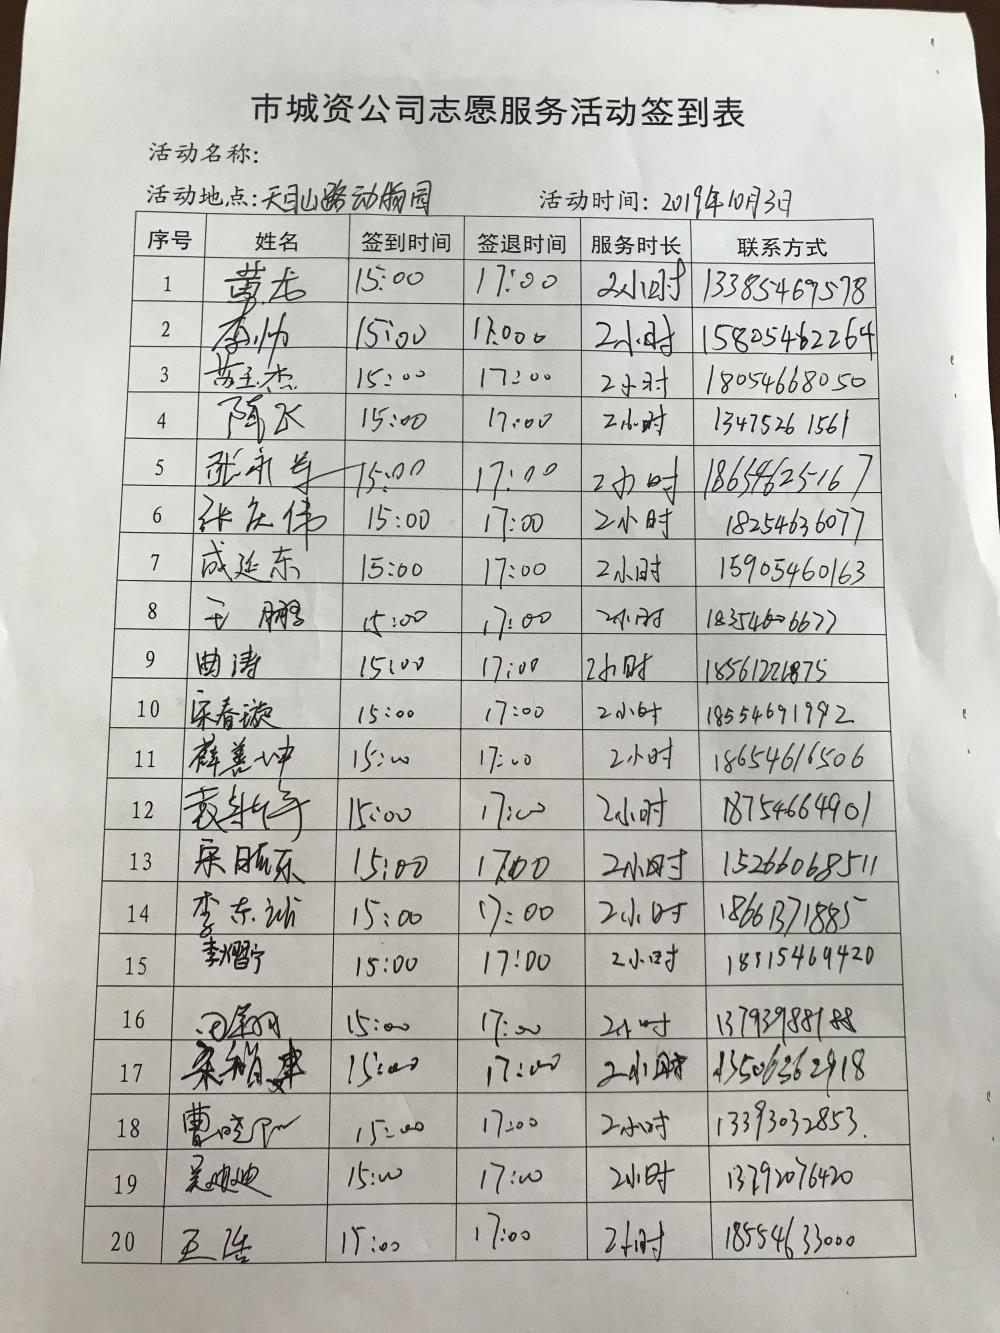 市城资公司志愿服务活动签到表
活动名称:
活动地点:天目山路动物园 活动时间: 2019年10月3日
序号 姓名 签到时间 签退时间 服务时长 联系方式
1 15:00 17:00 2小时 13385469578
2 李帅 15:00 17:000 2小时 15805462264
3 苏玉杰 15:00 17:00 2小时 18054668050
4 陈飞 15:00 17:00 2小时 13475261561
5 张永军 15:00 17:00 2小时 18654625167
6 张庆伟 15:00 17:00 2小时 18254636077
7 成延东 15:00 17:00 2小时 15905460163
8 王鹏 15:00 17:00 2小时 18354606677
9 曲涛 15:00 17:00 2小时 18561221875
10 宋春璇 15:00 17:00 2小时 18554691992
11 薛善坤 15:00 17:00 2小时 18654616506
12 15:00 17:00 2小时 18754664901
13 15:00 17:00 2小时 15266068511
14 李东 15:00 17:00 2小时 18661371885
15 李熠宁 15:00 17:00 2小时 18815469420
16 15:00 17:00 2小时 13793988188
17 15:00 17:00 2小时 13506362918
18 曹晓 15:00 17:00 2小时 13393032853.
19 吴迪迪 15:00 17:00 2小时 13792076420
20 王浩 15:00 17:00 2小时 18554633000